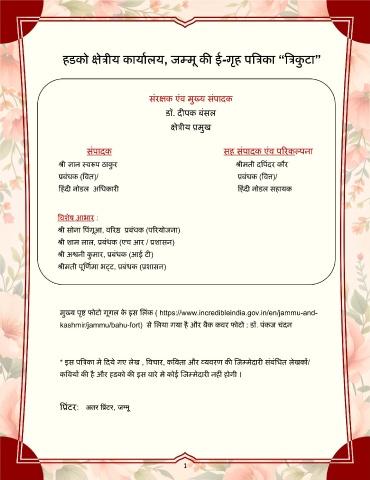 हडको क्षेत्रीय कार्यालय, जम्मू की ई-गृह पत्रिका “त्रिकुटा”
संरक्षक एंव मुख्य संपादक
डॉ. दीपक बंसल
क्षेत्रीय प्रमुख
संपादक
श्री ज्ञान स्वरुप ठाकुर
प्रबंधक (वित)/
हिंदी नोडल अधिकारी
सह संपादक एंव परिकल्पना
श्रीमती दपिंदर कौर
प्रबंधक (वित्त)/
हिंदी नोडल सहायक
विशेष आभार :
श्री सोना पिंगूआ, वरिष्ठ प्रबंधक (परियोजना)
श्री शाम लाल, प्रबंधक (एच आर / प्रशासन)
श्री अश्वनी कुमार, प्रबंधक (आई टी)
श्रीमती पूर्णिमा भट्ट, प्रबंधक (प्रशासन)
मुख्य पृष्ट फोटो गूगल के इस लिंक ( https://www.incredibleindia.gov.in/en/jammu-and-
kashmir/jammu/bahu-fort) से लिया गया है और बैक कवर फोटो : डॉ. पंकज चंदन
* इस पत्रिका मे दिये गए लेख , विचार, कविता और व्यवरण की जिम्मेदारी संबंधित लेखकों/
कवियों की है और हडको की इस बारे मे कोई जिम्मेदारी नहीं होगी ।
प्रिंटर: अतर प्रिंटर, जम्मू
1